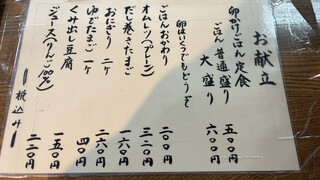 お献立
卵かけごはん定食
ごはん 普通盛り 五〇〇円
大盛り 六〇〇円
卵はいくつでもどうぞ
ごはんおかわり 二〇〇円
オムレツ(プレーン) 三二〇円
だし巻きたまご 一六〇円
おにぎり 一ケ 二六〇円
ゆでたまご 一ケ 四〇円
くみ出し豆腐 一五〇円
ジュース(りんご100%) 二二〇円
― 税込み ―